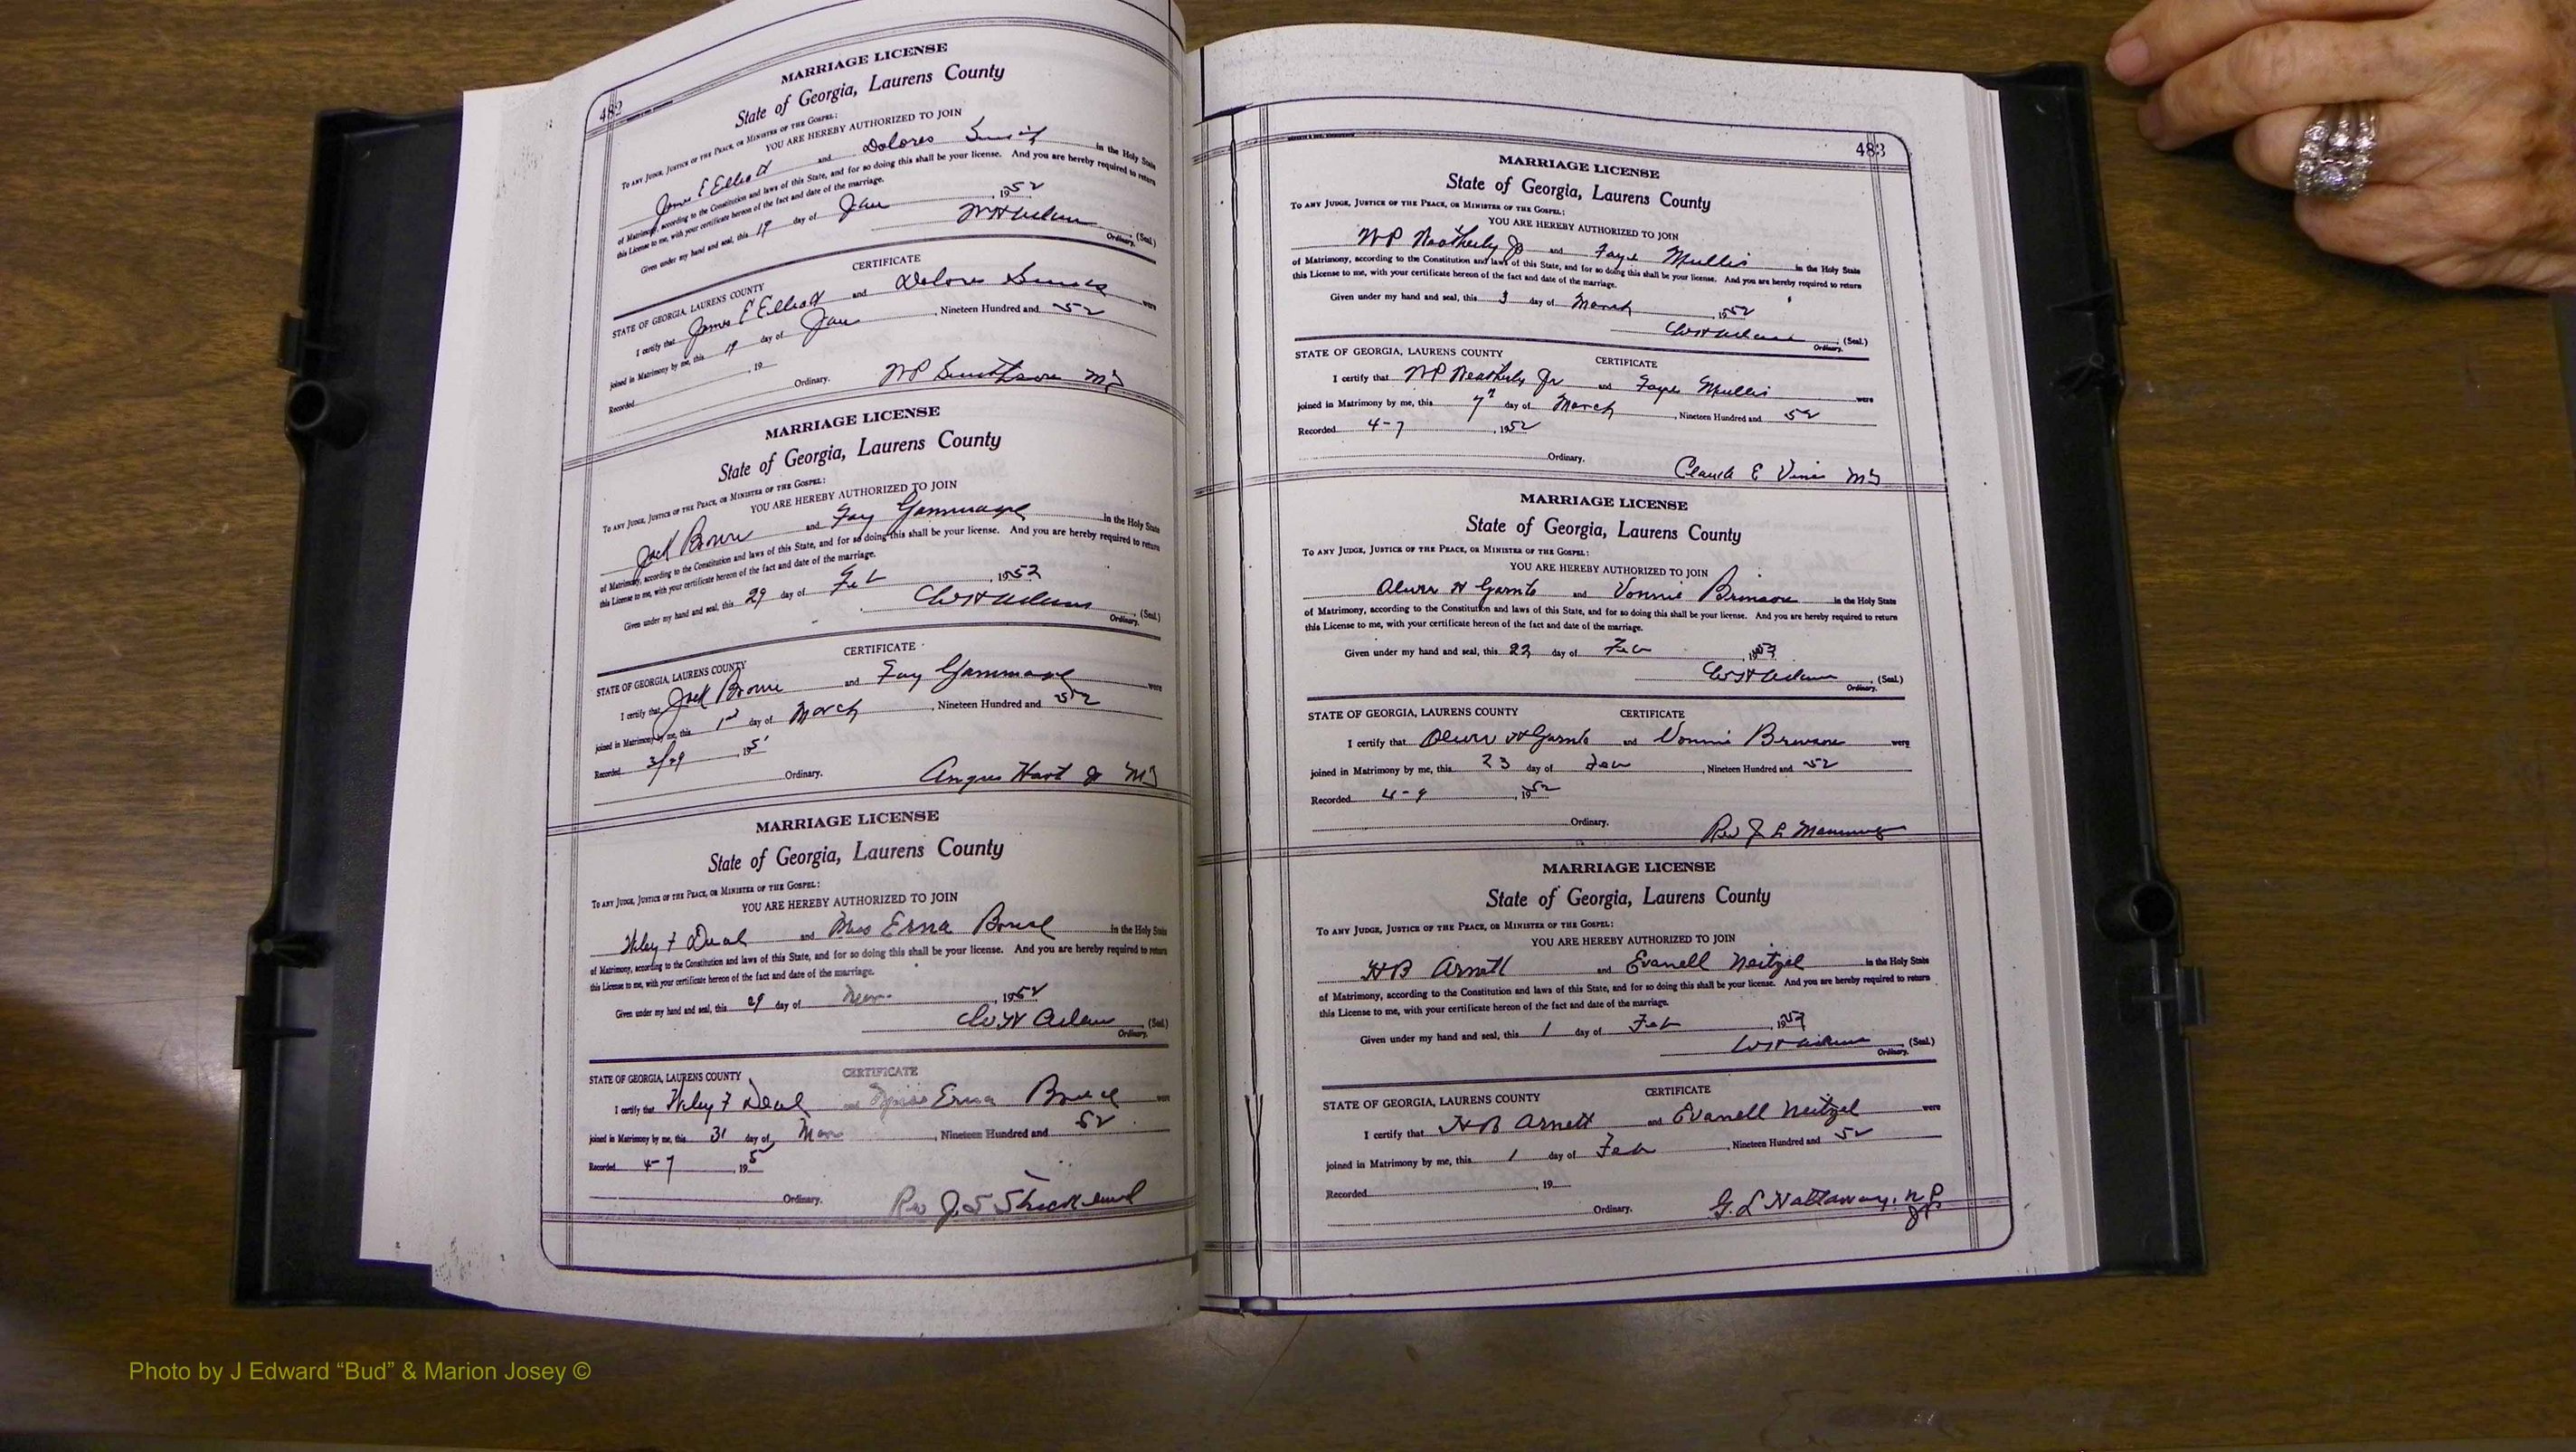 482
MARRIAGE LICENSE
State of Georgia, Laurens County
TO ANY JUDGE, JUSTICE OF THE PEACE, OR MINISTER OF THE GOSPEL:
YOU ARE HEREBY AUTHORIZED TO JOIN
James E Elliott and Dolores in the Holy State
of Matrimony, according to the Constitution and laws of this State, and for so doing this shall be your license. And you are hereby required to return
this License to me, with your certificate hereon of the fact and date of the marriage.
Given under my hand and seal, this 19 day of Jan , 1952
(Seal.)
Ordinary.
CERTIFICATE
STATE OF GEORGIA, LAURENS COUNTY
I certify that James E Elliott and Dolores were
joined in Matrimony by me, this 19 day of Jan , Nineteen Hundred and 52
Recorded , 19
Ordinary.
MARRIAGE LICENSE
State of Georgia, Laurens County
TO ANY JUDGE, JUSTICE OF THE PEACE, OR MINISTER OF THE GOSPEL:
YOU ARE HEREBY AUTHORIZED TO JOIN
Jack and Fay Gammage in the Holy State
of Matrimony, according to the Constitution and laws of this State, and for so doing this shall be your license. And you are hereby required to return
this License to me, with your certificate hereon of the fact and date of the marriage.
Given under my hand and seal, this 29 day of Feb , 1952
(Seal.)
Ordinary.
CERTIFICATE
STATE OF GEORGIA, LAURENS COUNTY
I certify that Jack and Fay Gammage were
joined in Matrimony by me, this 1st day of March , Nineteen Hundred and 52
Recorded 3/29 , 195
Ordinary. Angus Hart Jr
MARRIAGE LICENSE
State of Georgia, Laurens County
TO ANY JUDGE, JUSTICE OF THE PEACE, OR MINISTER OF THE GOSPEL:
YOU ARE HEREBY AUTHORIZED TO JOIN
Wiley F Deal and Miss Erna in the Holy State
of Matrimony, according to the Constitution and laws of this State, and for so doing this shall be your license. And you are hereby required to return
this License to me, with your certificate hereon of the fact and date of the marriage.
Given under my hand and seal, this 29 day of Mar , 1952
(Seal.)
Ordinary.
CERTIFICATE
STATE OF GEORGIA, LAURENS COUNTY
I certify that Wiley F Deal and Miss Erna were
joined in Matrimony by me, this 31 day of Mar , Nineteen Hundred and 52
Recorded 4-7 , 195
Ordinary. Rev J. S Strickland
483
MARRIAGE LICENSE
State of Georgia, Laurens County
TO ANY JUDGE, JUSTICE OF THE PEACE, OR MINISTER OF THE GOSPEL:
YOU ARE HEREBY AUTHORIZED TO JOIN
WP Weatherly Jr and Faye Mullis in the Holy State
of Matrimony, according to the Constitution and laws of this State, and for so doing this shall be your license. And you are hereby required to return
this License to me, with your certificate hereon of the fact and date of the marriage.
Given under my hand and seal, this 3 day of March , 1952
(Seal.)
Ordinary.
STATE OF GEORGIA, LAURENS COUNTY CERTIFICATE
I certify that WP Weatherly Jr and Faye Mullis were
joined in Matrimony by me, this 7th day of March , Nineteen Hundred and 52
Recorded 4-7 , 1952
Ordinary.
Claude E
MARRIAGE LICENSE
State of Georgia, Laurens County
TO ANY JUDGE, JUSTICE OF THE PEACE, OR MINISTER OF THE GOSPEL:
YOU ARE HEREBY AUTHORIZED TO JOIN
H and Vonnie in the Holy State
of Matrimony, according to the Constitution and laws of this State, and for so doing this shall be your license. And you are hereby required to return
this License to me, with your certificate hereon of the fact and date of the marriage.
Given under my hand and seal, this day of Feb
(Seal.)
Ordinary.
STATE OF GEORGIA, LAURENS COUNTY CERTIFICATE
I certify that and Vonnie were
joined in Matrimony by me, this 23 day of Feb , Nineteen Hundred and 52
Recorded 4-9 , 1952
Ordinary.
Rev J L Manning
MARRIAGE LICENSE
State of Georgia, Laurens County
TO ANY JUDGE, JUSTICE OF THE PEACE, OR MINISTER OF THE GOSPEL:
YOU ARE HEREBY AUTHORIZED TO JOIN
HB Arnett and Evanell Neitzel in the Holy State
of Matrimony, according to the Constitution and laws of this State, and for so doing this shall be your license. And you are hereby required to return
this License to me, with your certificate hereon of the fact and date of the marriage.
Given under my hand and seal, this 1 day of Feb
(Seal.)
Ordinary.
STATE OF GEORGIA, LAURENS COUNTY CERTIFICATE
I certify that HB Arnett and Evanell Neitzel were
joined in Matrimony by me, this 1 day of Feb , Nineteen Hundred and 52
Recorded , 19
Ordinary. G. L Hattaway, NP
JP
Photo by J Edward “Bud” & Marion Josey ©